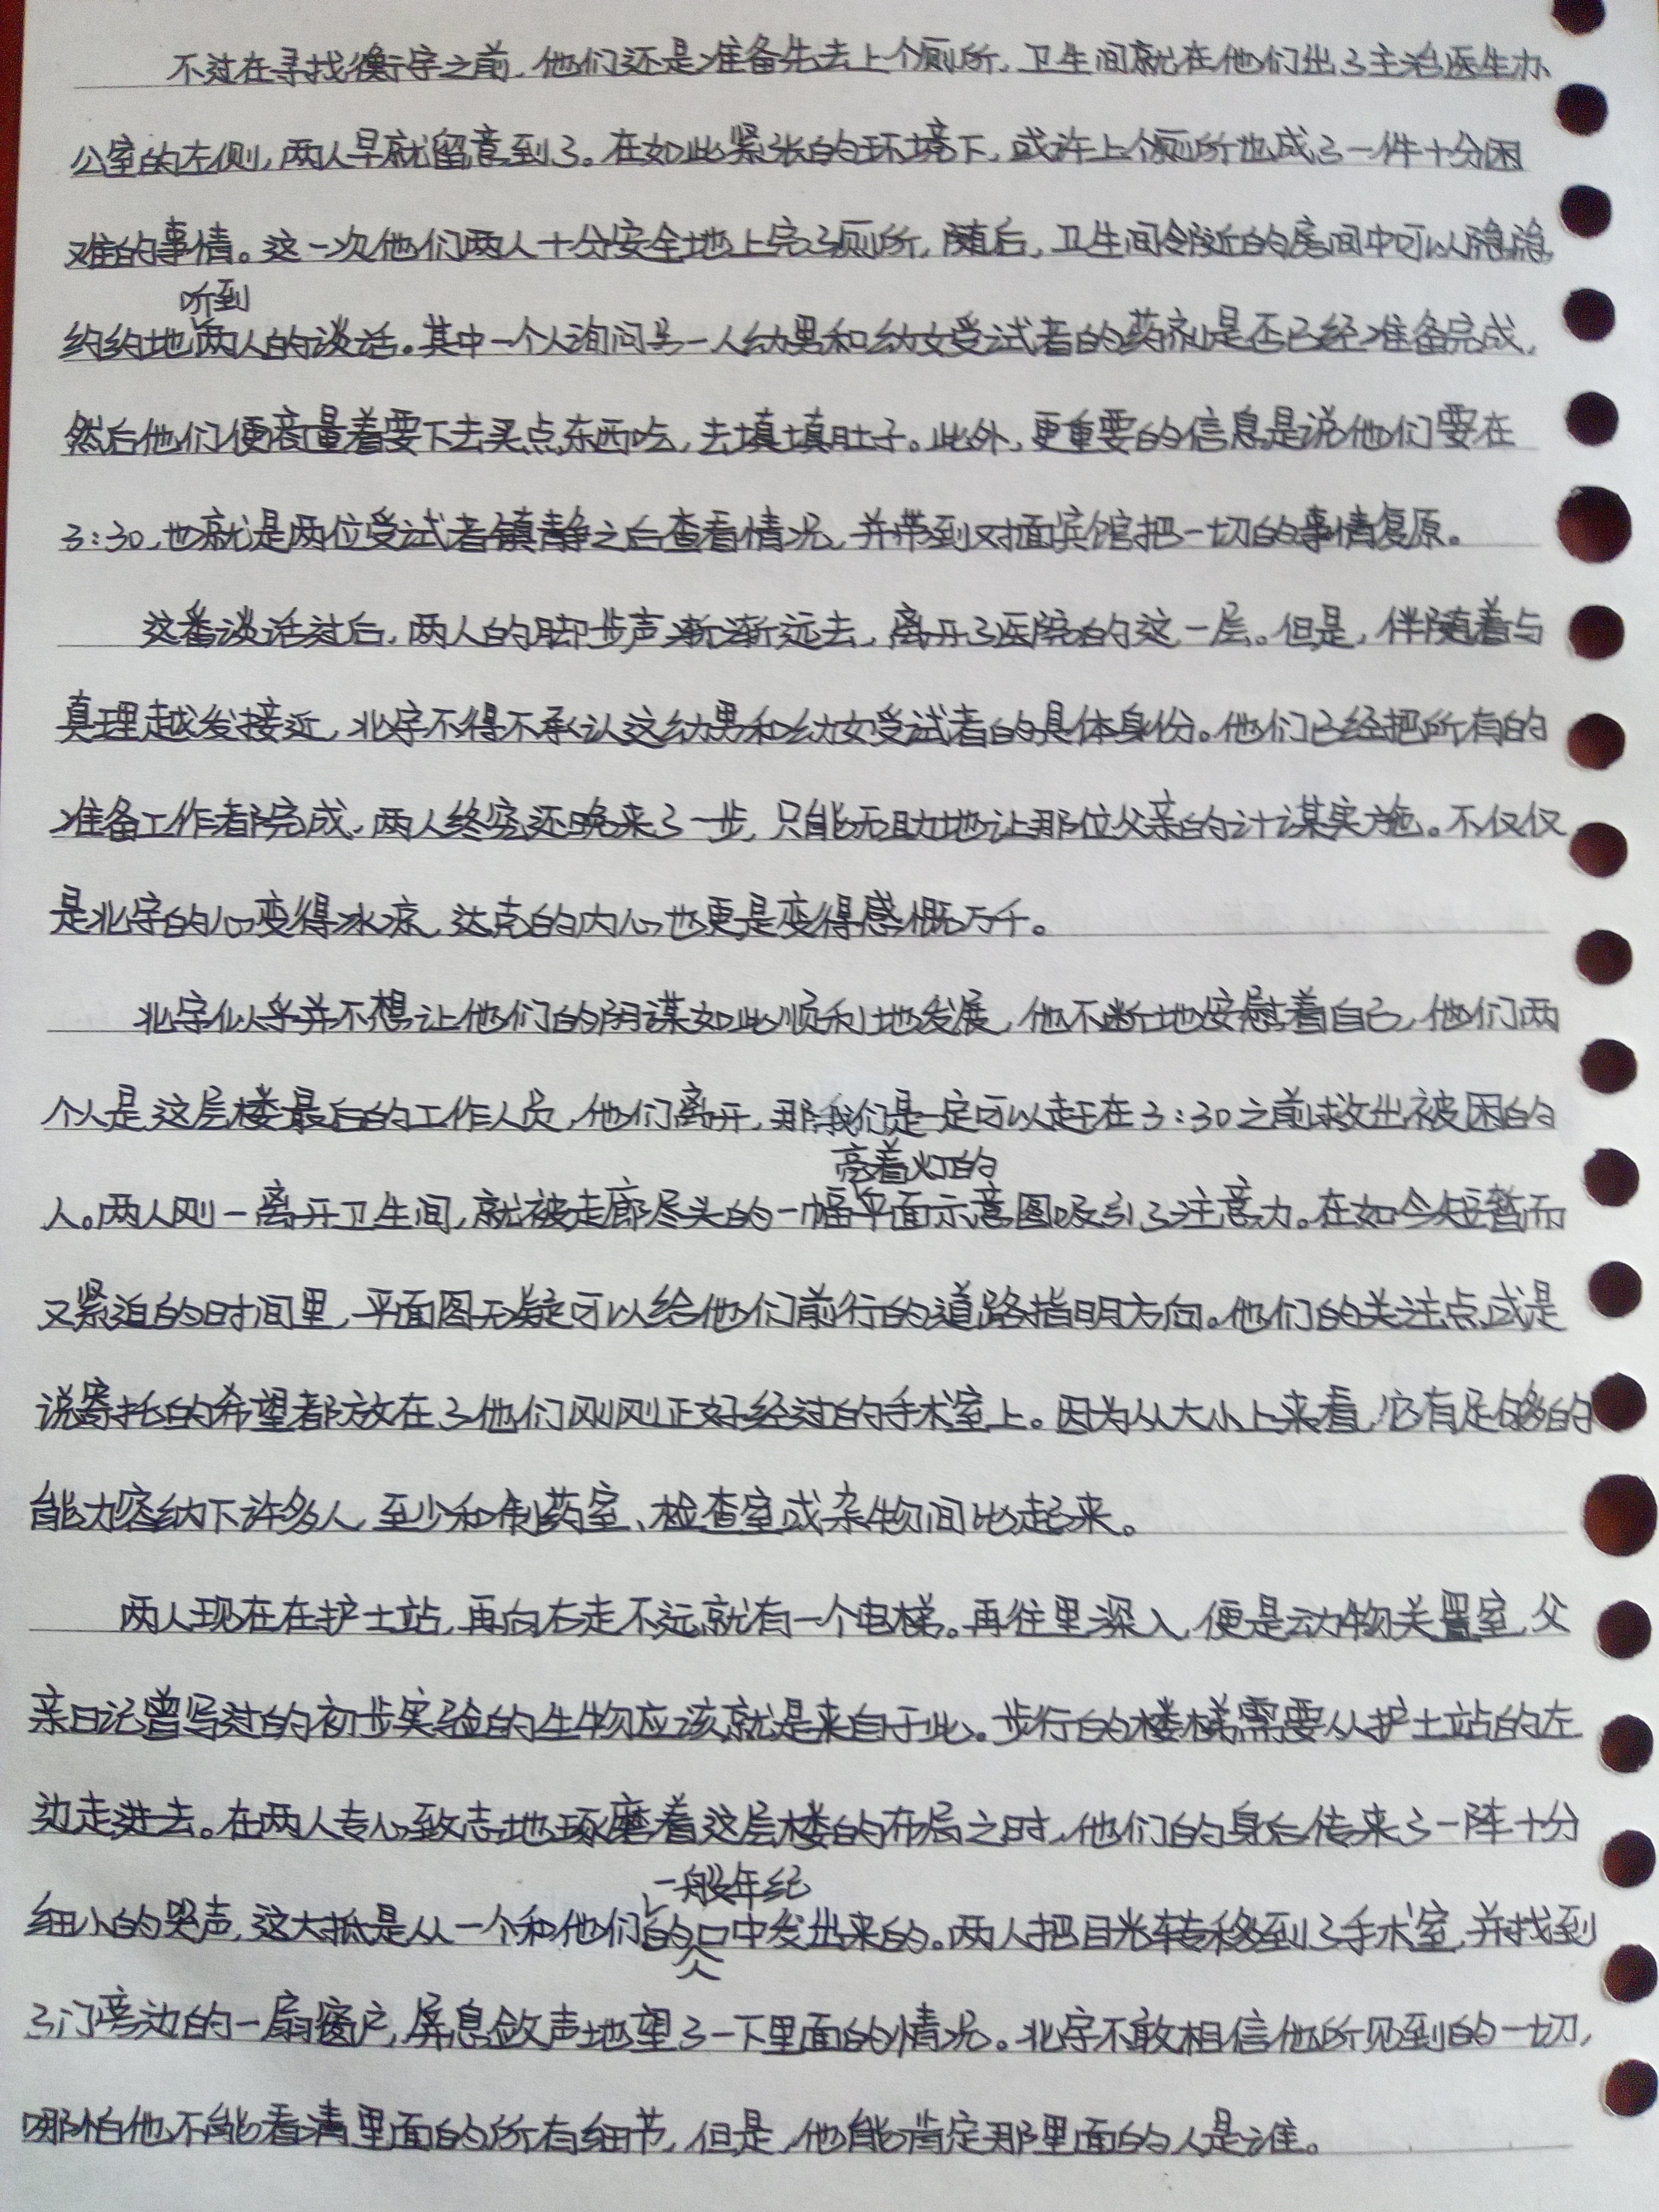 不过在寻找衡宇之前，他们还是准备先去上个厕所，卫生间就在他们出了主治医生办
公室的左侧，两人早就留意到了。在如此紧张的环境下，或许上个厕所也成了一件十分困
难的事情。这一次他们两人十分安全地上完了厕所，随后，卫生间邻近的房间中可以隐隐
约约地听到两人的谈话。其中一个人询问另一人幼男和幼女受试者的药剂是否已经准备完成，
然后他们便商量着要下去买点东西吃，去填填肚子。此外，更重要的信息是说他们要在
3:30，也就是两位受试者镇静之后查看情况，并带到对面宾馆把一切的事情复原。
这番谈话过后，两人的脚步声渐渐远去，离开了医院的这一层。但是，伴随着与
真理越发接近，北宇不得不承认这幼男和幼女受试者的具体身份。他们已经把所有的
准备工作都完成，两人终究还晚来了一步，只能无助地让那位父亲的计谋实施。不仅仅
是北宇的心变得冰凉，达克的内心也更是变得感慨万千。
北宇似乎并不想让他们的阴谋如此顺利地发展，他不断地安慰着自己，他们两
个人是这层楼最后的工作人员，他们离开，那我们是一定可以赶在3:30之前救出被困的
人。两人刚一离开卫生间，就被走廊尽头的一幅亮着灯的平面示意图吸引了注意力。在如今短暂而
又紧迫的时间里，平面图无疑可以给他们前行的道路指明方向。他们的关注点或是
说寄托的希望都放在了他们刚刚正好经过的手术室上。因为从大小上来看，它有足够的
能力容纳下许多人，至少和制药室、检查室或杂物间比起来。
两人现在在护士站，再向右走不远就有一个电梯。再往里深入，便是动物关置室，父
亲日记曾写过的初步实验的生物应该就是来自于此。步行的楼梯需要从护士站的左
边走进去。在两人专心致志地琢磨着这层楼的布局之时，他们的身后传来了一阵十分
细小的哭声，这大抵是从一个和他们一般年纪的人口中发出来的。两人把目光转移到了手术室，并找到
了门旁边的一扇窗户，屏息敛声地望了一下里面的情况。北宇不敢相信他所见到的一切，
哪怕他不能看清里面的所有细节，但是，他能肯定那里面的人是谁。